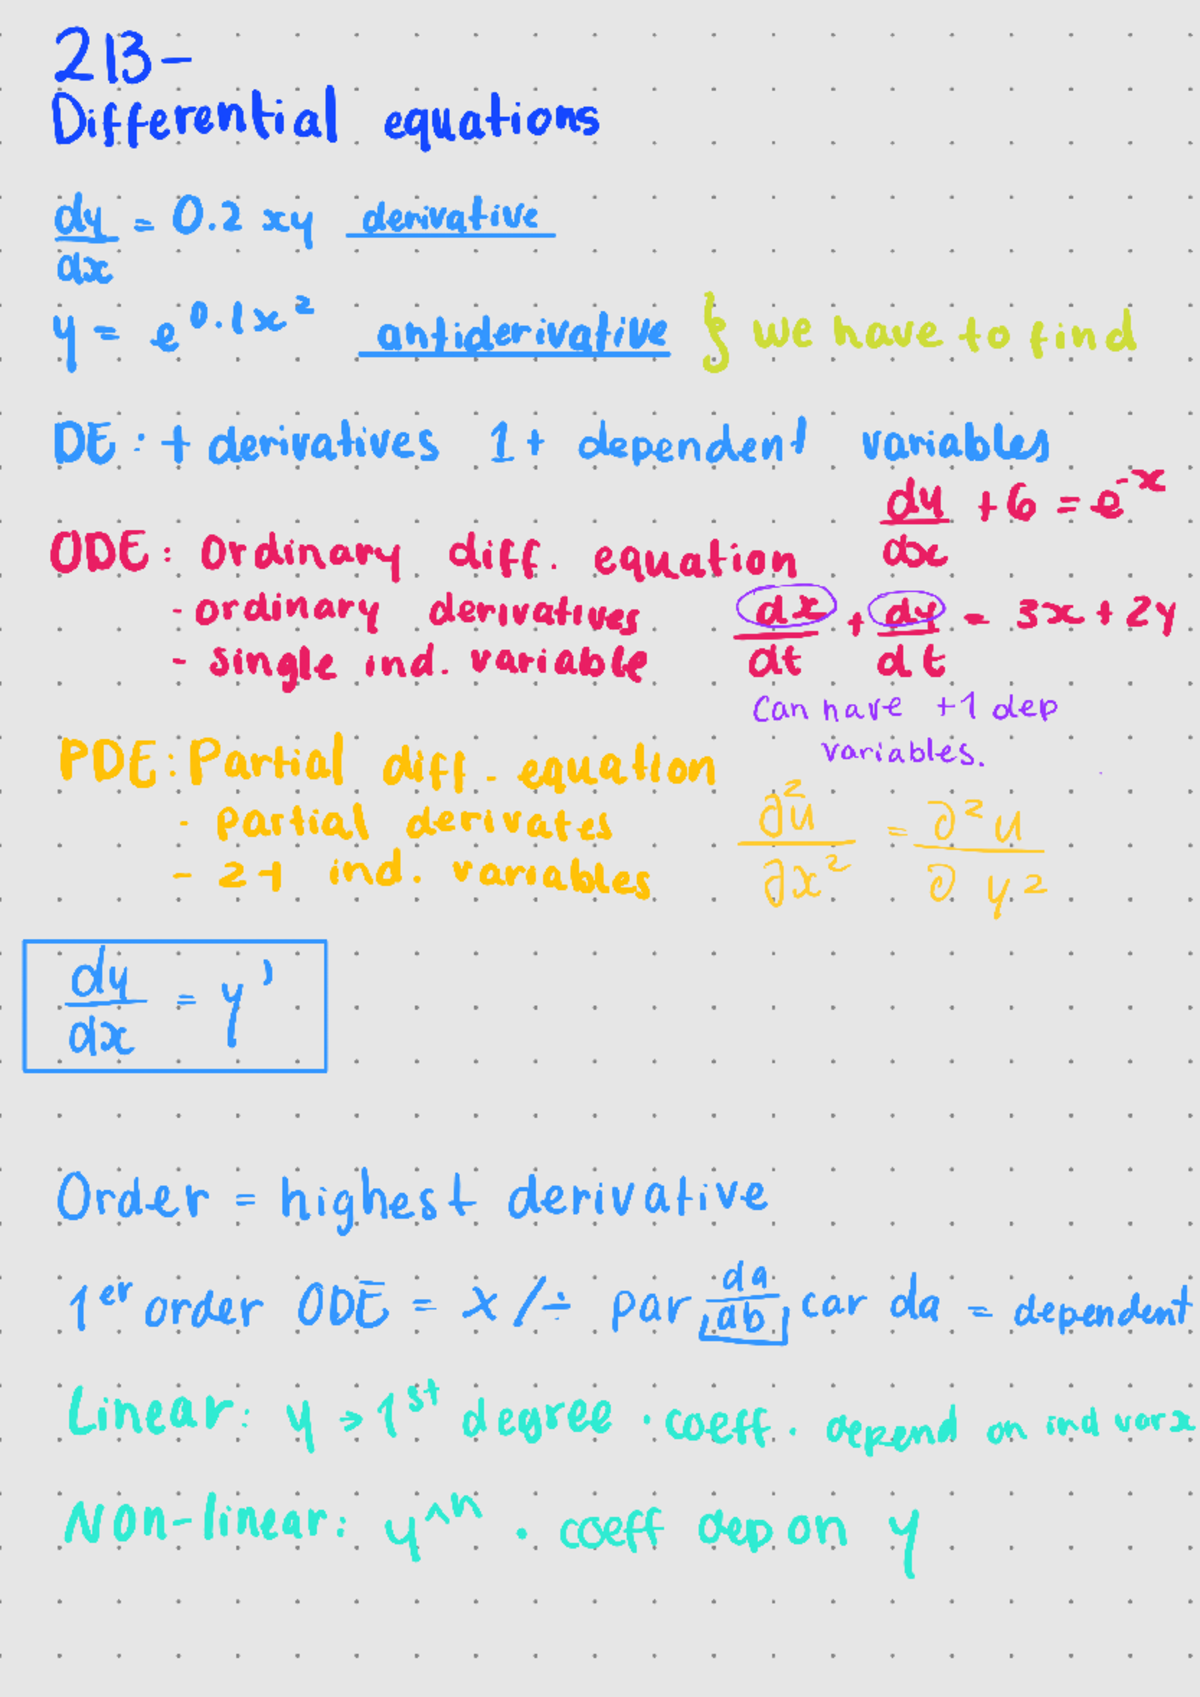 213-
Differential equations
dy/dx = 0.2 xy derivative
y = e^0.1x² antiderivative } we have to find
DE: + derivatives 1+ dependent variables
dy/dx + 6 = e^-x
ODE: Ordinary diff. equation
- ordinary derivatives
dx/dt + dy/dt = 3x + 2y
- single ind. variable
Can have +1 dep
variables.
PDE: Partial diff. equation
- partial derivates
∂²u/∂x² = ∂²u/∂y²
- 2+ ind. variables
dy/dx = y'
Order = highest derivative
1er order ODE = x /÷ par da/ab car da = dependent
Linear: y → 1st degree · coeff. depend on ind var x
Non-linear: y^n · coeff dep on y